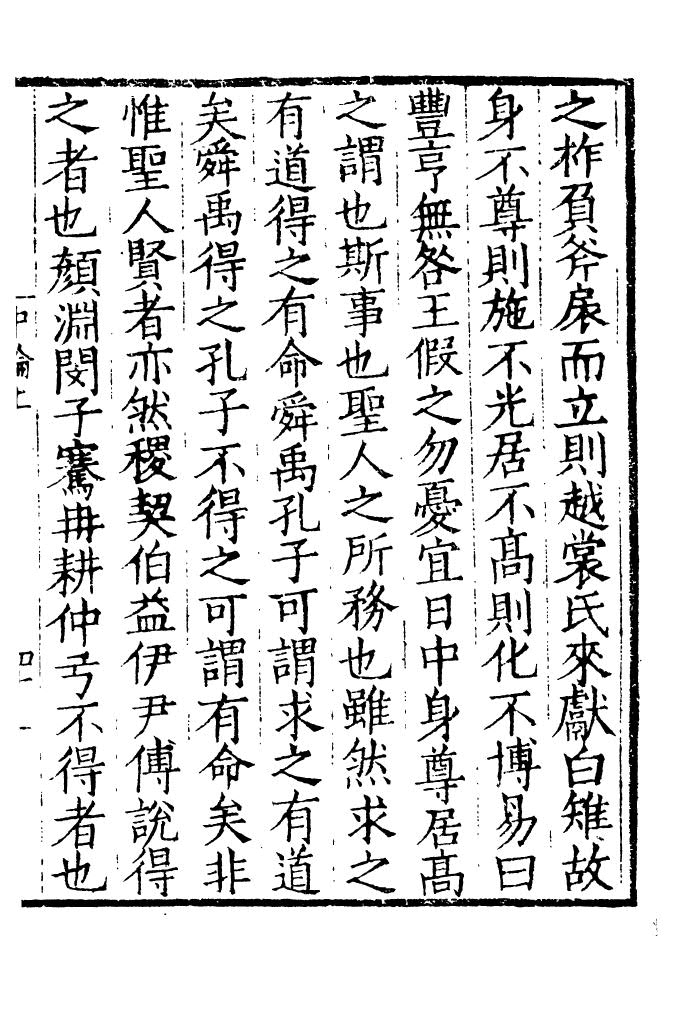 之柞負斧扆而立則越裳氏來獻白雉故
身不尊則施不光居不髙則化不博易曰
豐亨無咎王假之勿憂宜日中身尊居髙
之謂也斯事也聖人之所務也雖然求之
有道得之有命舜禹孔子可謂求之有道
矣舜禹得之孔子不得之可謂有命矣非
惟聖人賢者亦然稷契伯益伊尹傅說得
之者也顏淵閔子騫冉耕仲弓不得者也
中論上